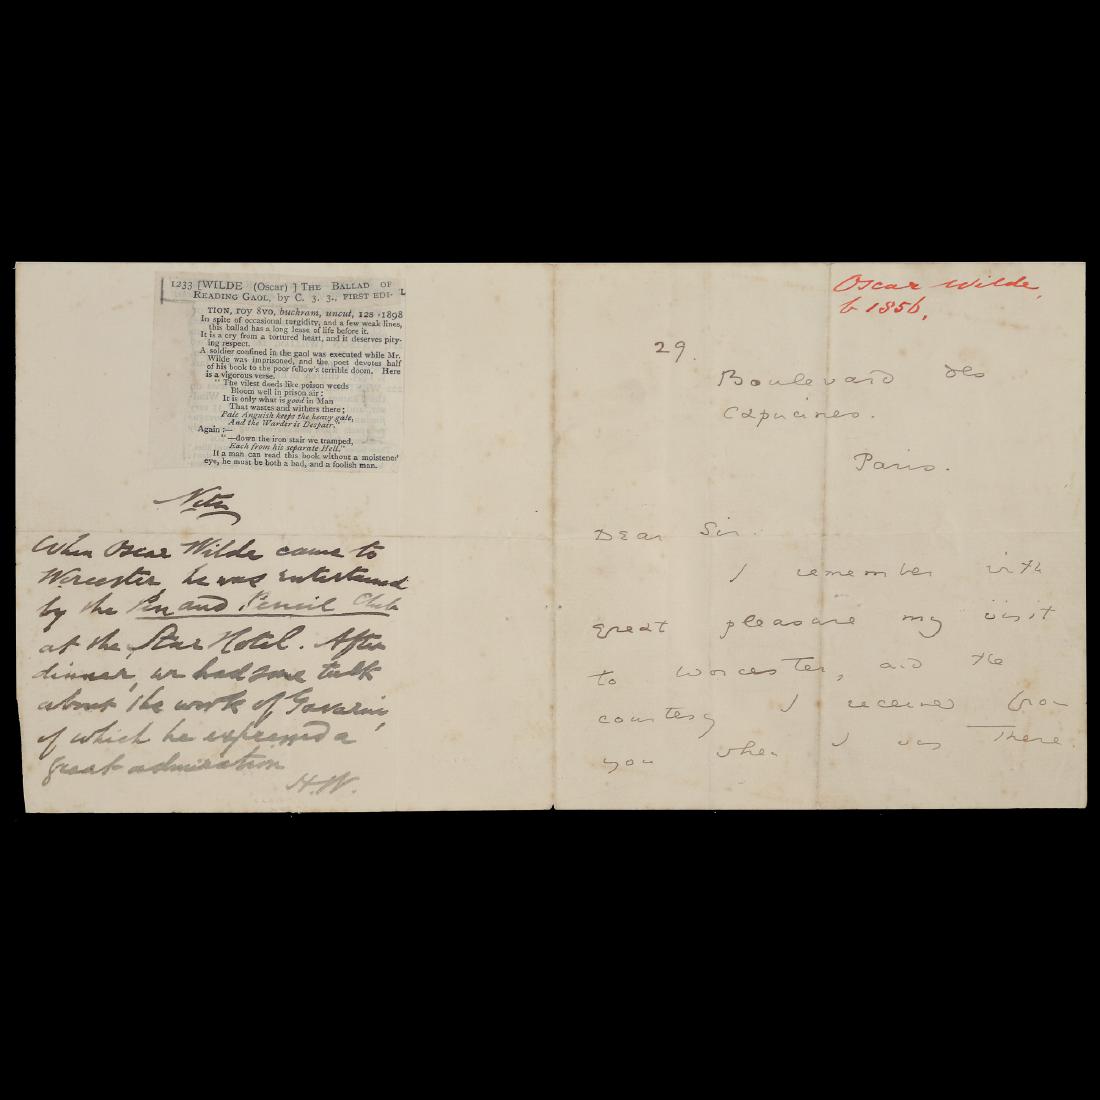 1233 [WILDE (Oscar) ] THE BALLAD OF
READING GAOL, by C. 3. 3., FIRST EDI-
TION, roy 8vo, buckram, uncut, 12s 1898
In spite of occasional turgidity, and a few weak lines,
this ballad has a long lease of life before it.
It is a cry from a tortured heart, and it deserves pity-
ing respect.
A soldier confined in the gaol was executed while Mr.
Wilde was imprisoned, and the poet devotes half
of his book to the poor fellow's terrible doom. Here
is a vigorous verse.
"The vilest deeds like poison weeds
Bloom well in prison air;
It is only what is good in Man
That wastes and withers there;
Pale Anguish keeps the heavy gate,
And the Warder is Despair."
Again :—
"—down the iron stair we tramped,
Each from his separate Hell."
If a man can read this book without a moistened
eye, he must be both a bad, and a foolish man.
When Oscar Wilde came to
Worcester, he was entertained
by the Pen and Pencil Club
at the Star Hotel. After
dinner, we had some talk
about the work of Gavarni,
of which he expressed a
great admiration
H.W.
Oscar Wilde,
b 1856,
29.
Boulevard des
Capucines.
Paris.
Dear Sir.
I remember with
great pleasure my visit
to Worcester, and the
courtesy I received from
you when I was there